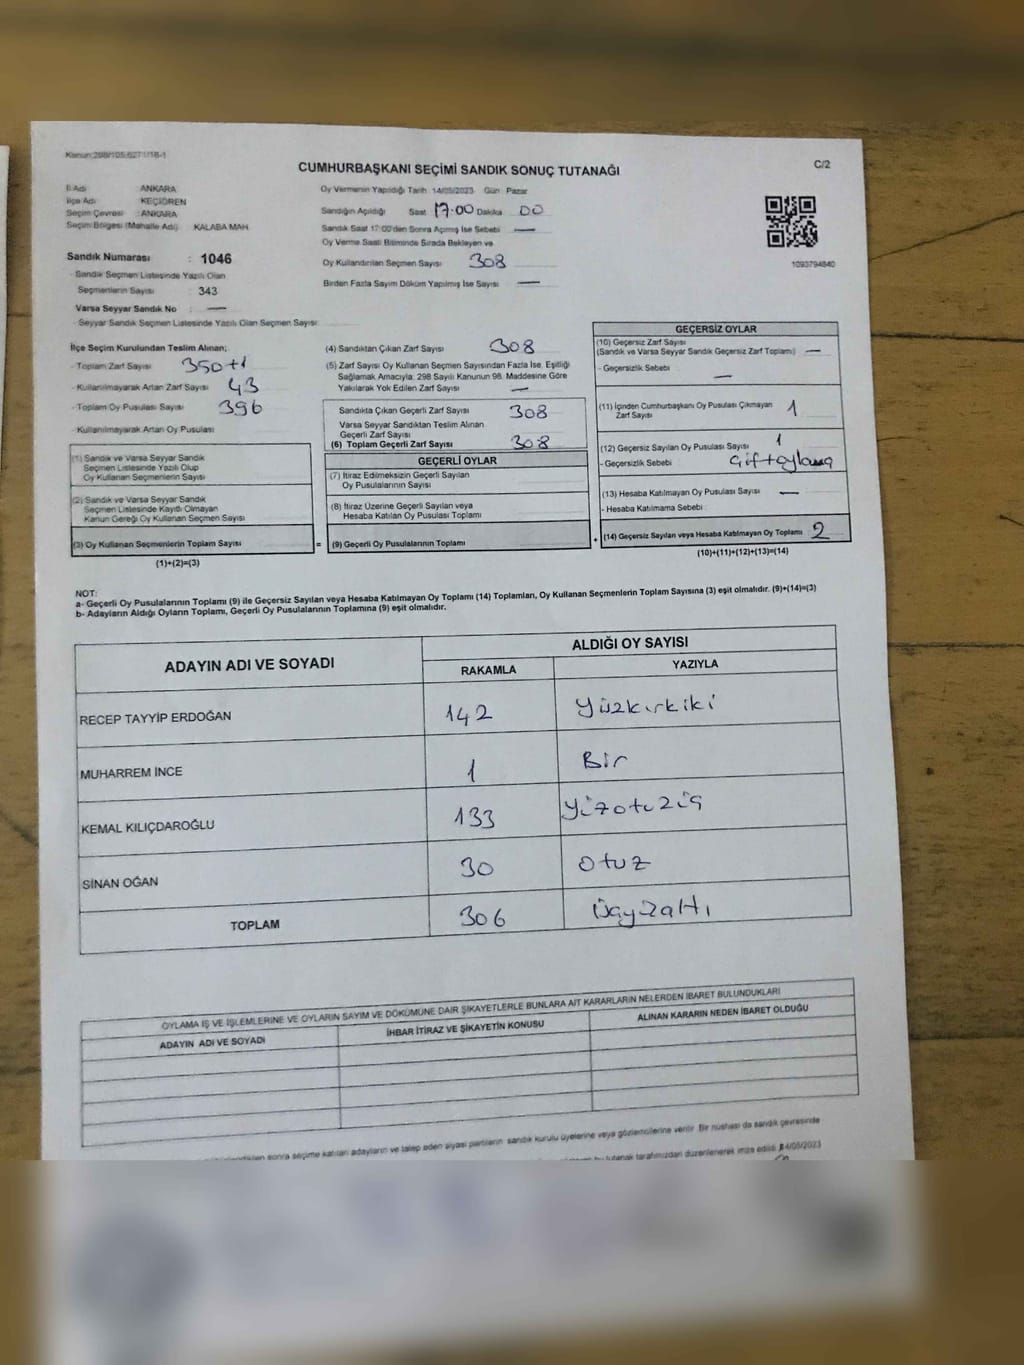 Kanun:298/105,6271/18-1
CUMHURBAŞKANI SEÇİMİ SANDIK SONUÇ TUTANAĞI
C/2
İl Adı : ANKARA
İlçe Adı : KEÇİÖREN
Seçim Çevresi : ANKARA
Seçim Bölgesi (Mahalle Adı) KALABA MAH.
Sandık Numarası : 1046
- Sandık Seçmen Listesinde Yazılı Olan
Seçmenlerin Sayısı : 343
Varsa Seyyar Sandık No : —
- Seyyar Sandık Seçmen Listesinde Yazılı Olan Seçmen Sayısı:
Oy Vermenin Yapıldığı Tarih 14/05/2023 Gün Pazar
Sandığın Açıldığı Saat 17:00 Dakika 00
Sandık Saat 17:00'den Sonra Açılmış İse Sebebi —
Oy Verme Saati Bitiminde Sırada Bekleyen ve
Oy Kullandırılan Seçmen Sayısı 308
Birden Fazla Sayım Döküm Yapılmış İse Sayısı —
1093794840
İlçe Seçim Kurulundan Teslim Alınan;
- Toplam Zarf Sayısı 350+1
- Kullanılmayarak Artan Zarf Sayısı 43
- Toplam Oy Pusulası Sayısı 396
- Kullanılmayarak Artan Oy Pusulası
(1) Sandık ve Varsa Seyyar Sandık
Seçmen Listesinde Yazılı Olup
Oy Kullanan Seçmenlerin Sayısı
(2) Sandık ve Varsa Seyyar Sandık
Seçmen Listesinde Kayıtlı Olmayan
Kanun Gereği Oy Kullanan Seçmen Sayısı
(3) Oy Kullanan Seçmenlerin Toplam Sayısı
(1)+(2)=(3)
(4) Sandıktan Çıkan Zarf Sayısı 308
(5) Zarf Sayısı Oy Kullanan Seçmen Sayısından Fazla İse, Eşitliği
Sağlamak Amacıyla, 298 Sayılı Kanunun 98. Maddesine Göre
Yakılarak Yok Edilen Zarf Sayısı —
Sandıkta Çıkan Geçerli Zarf Sayısı 308
Varsa Seyyar Sandıktan Teslim Alınan
Geçerli Zarf Sayısı
(6) Toplam Geçerli Zarf Sayısı 308
GEÇERLİ OYLAR
(7) İtiraz Edilmeksizin Geçerli Sayılan
Oy Pusulalarının Sayısı
(8) İtiraz Üzerine Geçerli Sayılan veya
Hesaba Katılan Oy Pusulası Toplamı
= (9) Geçerli Oy Pusulalarının Toplamı
GEÇERSİZ OYLAR
(10) Geçersiz Zarf Sayısı
(Sandık ve Varsa Seyyar Sandık Geçersiz Zarf Toplamı) —
- Geçersizlik Sebebi —
(11) İçinden Cumhurbaşkanı Oy Pusulası Çıkmayan
Zarf Sayısı 1
(12) Geçersiz Sayılan Oy Pusulası Sayısı 1
- Geçersizlik Sebebi Çift oylama
(13) Hesaba Katılmayan Oy Pusulası Sayısı —
- Hesaba Katılmama Sebebi
+ (14) Geçersiz Sayılan veya Hesaba Katılmayan Oy Toplamı 2
(10)+(11)+(12)+(13)=(14)
NOT:
a- Geçerli Oy Pusulalarının Toplamı (9) ile Geçersiz Sayılan veya Hesaba Katılmayan Oy Toplamı (14) Toplamları, Oy Kullanan Seçmenlerin Toplam Sayısına (3) eşit olmalıdır. (9)+(14)=(3)
b- Adayların Aldığı Oyların Toplamı, Geçerli Oy Pusulalarının Toplamına (9) eşit olmalıdır.
ADAYIN ADI VE SOYADI
ALDIĞI OY SAYISI
RAKAMLA YAZIYLA
RECEP TAYYİP ERDOĞAN 142 yüzkırkiki
MUHARREM İNCE 1 Bir
KEMAL KILIÇDAROĞLU 133 yüzotuzüç
SİNAN OĞAN 30 otuz
TOPLAM 306 üçyüzaltı
OYLAMA İŞ VE İŞLEMLERİNE VE OYLARIN SAYIM VE DÖKÜMÜNE DAİR ŞİKAYETLERLE BUNLARA AİT KARARLARIN NELERDEN İBARET BULUNDUKLARI
ADAYIN ADI VE SOYADI İHBAR İTİRAZ VE ŞİKAYETİN KONUSU ALINAN KARARIN NEDEN İBARET OLDUĞU
sonra seçime katılan adayların ve talep eden siyasi partilerin sandık kurulu üyelerine veya gözlemcilerine verilir. Bir nüshası da sandık çevresinde
bu tutanak tarafımızdan düzenlenerek imza edildi. 14/05/2023